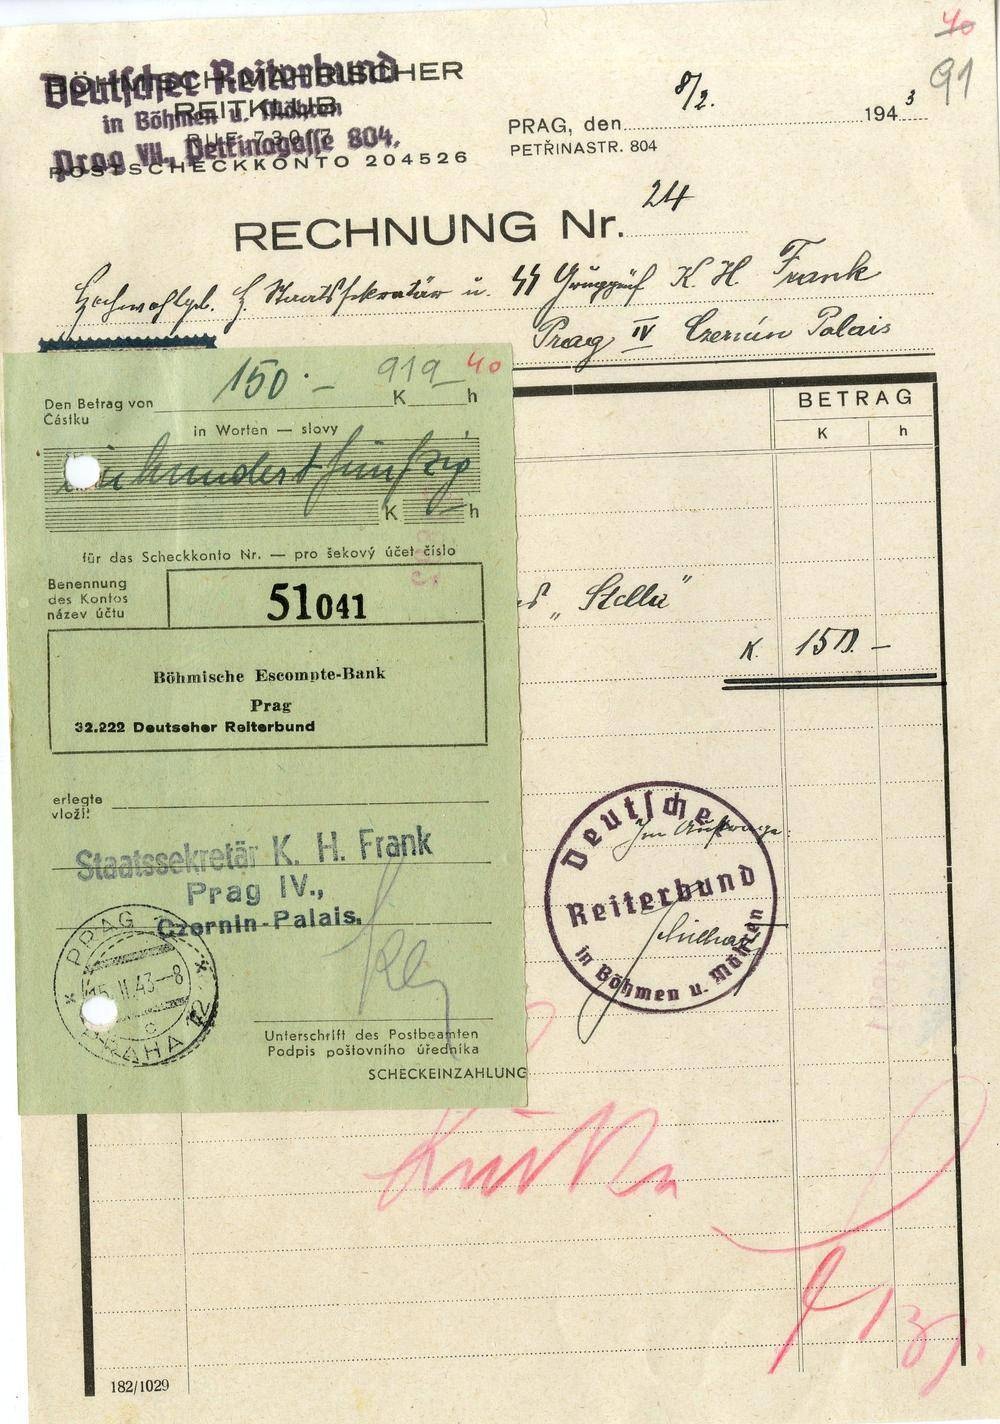 40
91
BÖHMISCH-MÄHRISCHER
REITKLUB
RUF 730 7
POSTSCHECKKONTO 204526
Deutscher Reiterbund
in Böhmen u. Mähren
Prag VII., Petřinagasse 804.
PRAG, den 8/2. 1943
PETŘINASTR. 804
RECHNUNG Nr. 24
Hochwohlgb. H. Staatssekretär u. SS Gruppenf K. H. Frank
Prag IV Czernin Palais
BETRAG
K h
"Stella"
K. 150.–
Im Auftrage:
Deutscher
Reiterbund
in Böhmen u. Mähren
182/1029
150.– 919 40
Den Betrag von K h
Částku
in Worten — slovy
einhundertfünfzig
K h
für das Scheckkonto Nr. — pro šekový účet číslo
Benennung
des Kontos
název účtu
51041
Böhmische Escompte-Bank
Prag
32.222 Deutscher Reiterbund
erlegte
vložil
Staatssekretär K. H. Frank
Prag IV.,
Czernin-Palais.
PRAG 12
15. II. 43–8
c
PRAHA 12
Unterschrift des Postbeamten
Podpis poštovního úředníka
SCHECKEINZAHLUNG